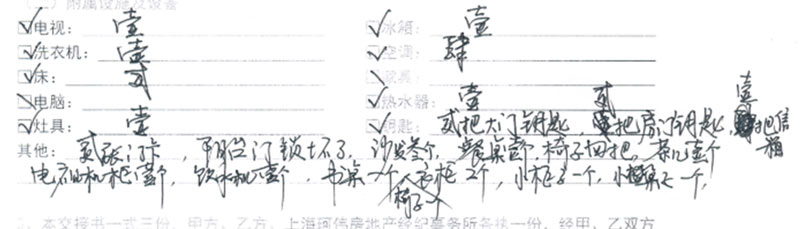 (二) 附属设施及设备
☑电视: 壹 ☑冰箱: 壹
☑洗衣机: 壹 ☑空调: 肆
☑床: 贰 ☑家具:
☐电脑: ☑热水器: 壹
☑灶具: 壹 ☑钥匙: 贰把大门钥匙, 贰把房门钥匙, 壹把信箱
其他: 贰张门卡, 阳台门锁坏了, 沙发叁个, 餐桌壹个, 椅子四把, 茶几壹个
电视机柜壹个, 饮水机壹个, 书桌一个, 书柜2个, 小柜子一个, 小桌子一个,
椅子一个
3、本交接书一式三份, 甲方、乙方、上海珂伟房地产经纪事务所各执一份, 经甲、乙双方